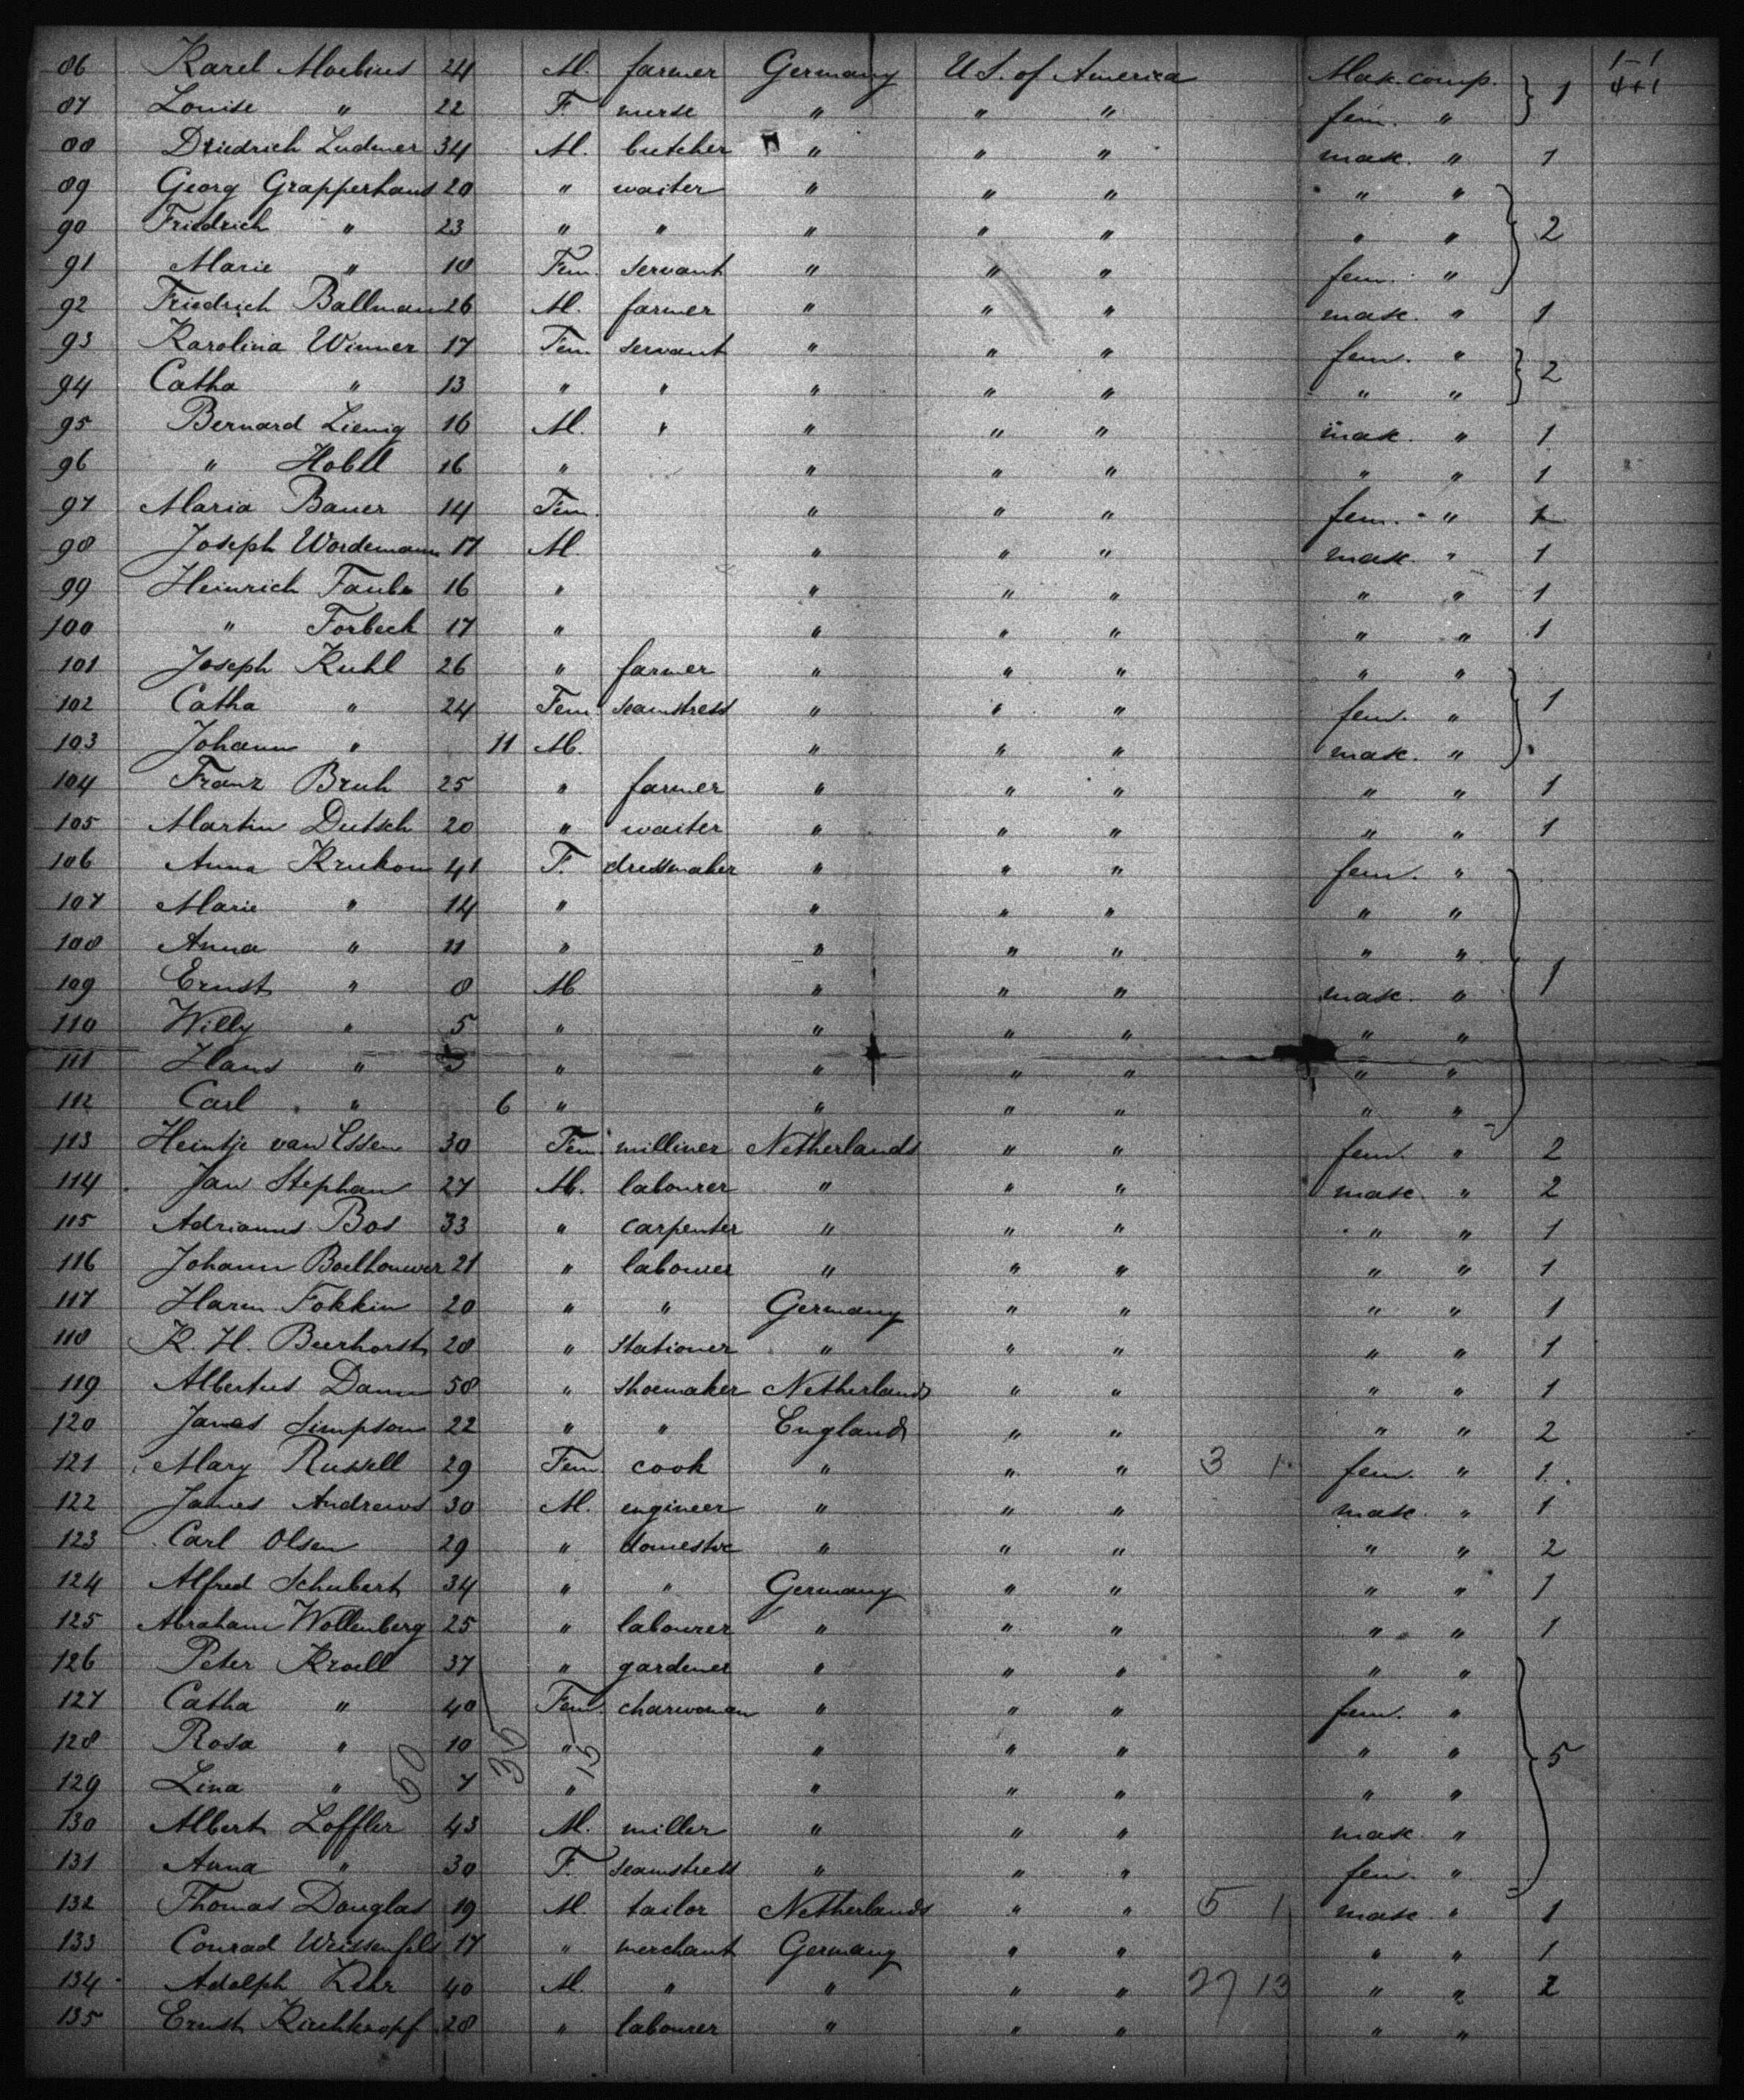 86 Karel Moebius 24 M. farmer Germany U.S. of America Mak. comp. 1 1-1 4+1
87 Louise " 22 F. nurse " " " fem. "
88 Driedrich Ludener 34 M. butcher " " " mask. " 1
89 Georg Grapperhaus 20 " waiter " " " " "
90 Friedrich " 23 " " " " " " " 2
91 Marie " 18 Fem. servant " " " fem. "
92 Friedrich Ballmann 26 M. farmer " " " mask. " 1
93 Karolina Winner 17 Fem. servant " " " fem. "
94 Catha " 13 " " " " " " " 2
95 Bernard Lienig 16 M. " " " " mask. " 1
96 " Hobel 16 " " " " " " 1
97 Maria Bauer 14 Fem. " " " fem. " 1
98 Joseph Wordemann 17 M. " " " mask. " 1
99 Heinrich Taube 16 " " " " " " 1
100 " Forbeck 17 " " " " " " 1
101 Joseph Kuhl 26 " farmer " " " " "
102 Catha " 24 Fem seamstress " " " fem. " 1
103 Johann " 11 M. " " " mask. "
104 Franz Bruh 25 " farmer " " " " " 1
105 Martin Dutsch 20 " waiter " " " " " 1
106 Anna Krukow 41 F. dressmaker " " " fem. "
107 Marie " 14 " " " " " "
108 Anna " 11 " " " " " "
109 Ernst " 8 M. " " " mask. " 1
110 Willy " 5 " " " " " "
111 Hans " 3 " " " " " "
112 Carl " 6 " " " " " "
113 Heintje van Essen 30 Fem milliner Netherlands " " fem. " 2
114 Jan Stephan 27 M. labourer " " " mask " 2
115 Adrianus Bos 33 " carpenter " " " " " 1
116 Johann Boelhouwer 21 " labourer " " " " " 1
117 Harm Fokkin 20 " " Germany " " " " 1
118 K. H. Beerhorst 28 " stationer " " " " " 1
119 Albertus Damm 58 " shoemaker Netherlands " " " " 1
120 James Simpson 22 " " England " " " " 2
121 Mary Russell 29 Fem. cook " " " 3 1 fem. " 1
122 James Andrews 30 M. engineer " " " mask. " 1
123 Carl Olsen 29 " domestic " " " " " 2
124 Alfred Schubert 34 " " Germany " " " " 1
125 Abraham Wollenberg 25 " labourer " " " " " 1
126 Peter Kroell 37 " gardener " " " " "
127 Catha " 40 Fem. charwoman " " " fem. "
128 Rosa " 10 " " " " " " 5
129 Lina " 7 " " " " " "
130 Albert Loffler 43 M. miller " " " mask. "
131 Anna " 30 F. seamstress " " " fem. "
132 Thomas Douglas 19 M. tailor Netherlands " " 5 1 mask. " 1
133 Conrad Weissenfels 17 " merchant Germany " " " " 1
134 Adolph Lehr 40 M. " " " " 27 13 " " 2
135 Ernst Kirchkropf 28 " labourer " " " " "